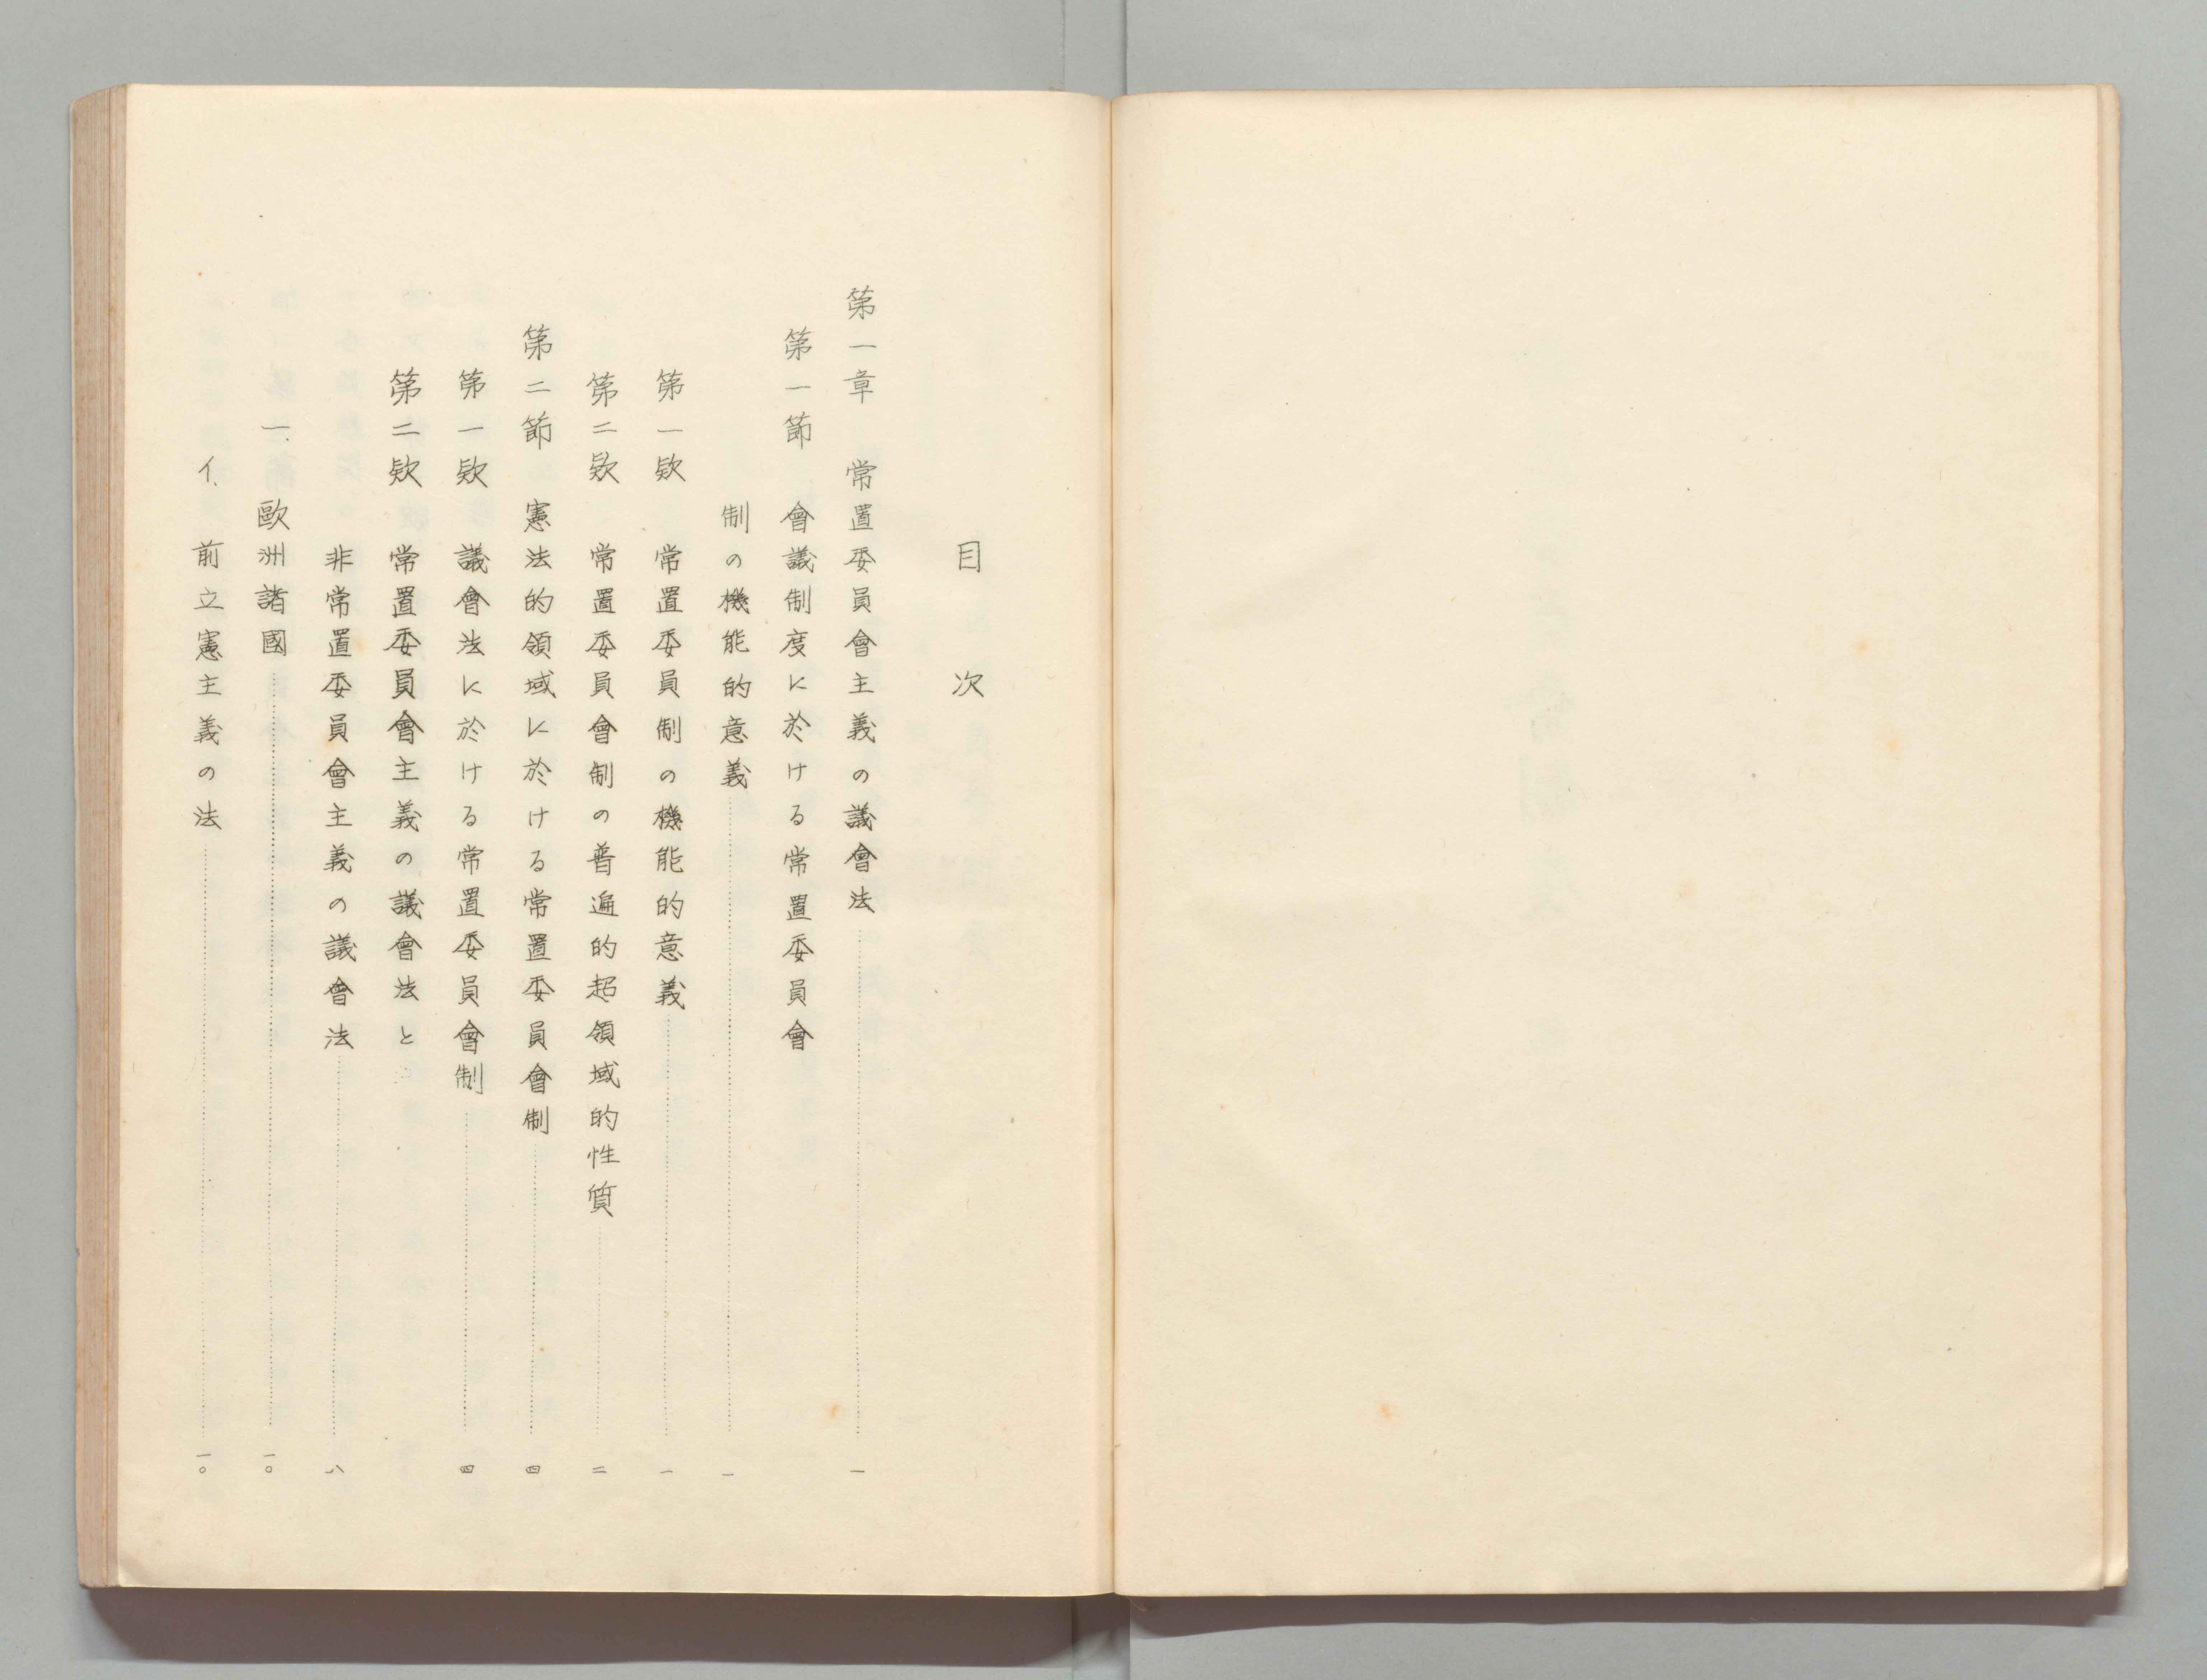 目次
第一章　常置委員會主義の議會法……一
第一節　會議制度に於ける常置委員會
制の機能的意義……一
第一欵　常置委員制の機能的意義……一
第二欵　常置委員會制の普遍的超領域的性質……二
第二節　憲法的領域に於ける常置委員會制……四
第一欵　議會法に於ける常置委員會制……四
第二欵　常置委員會主義の議會法と
非常置委員會主義の議會法……八
一、歐洲諸國……一〇
イ、前立憲主義の法……一〇